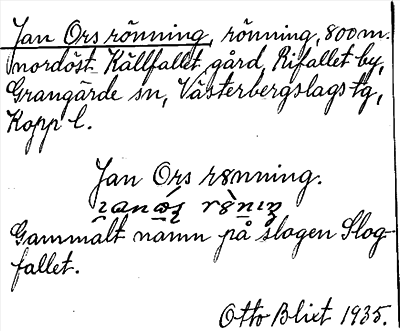 Jan Ors rönning, rönning, 800 m.
nordöst Källfallet gård, Rifallet by,
Grangärde sn, Västerbergslags tg,
Kopp l.
Jan Ors rønning.
Gammalt namn på slogen Slog-
fallet.
Otto Blixt 1935.